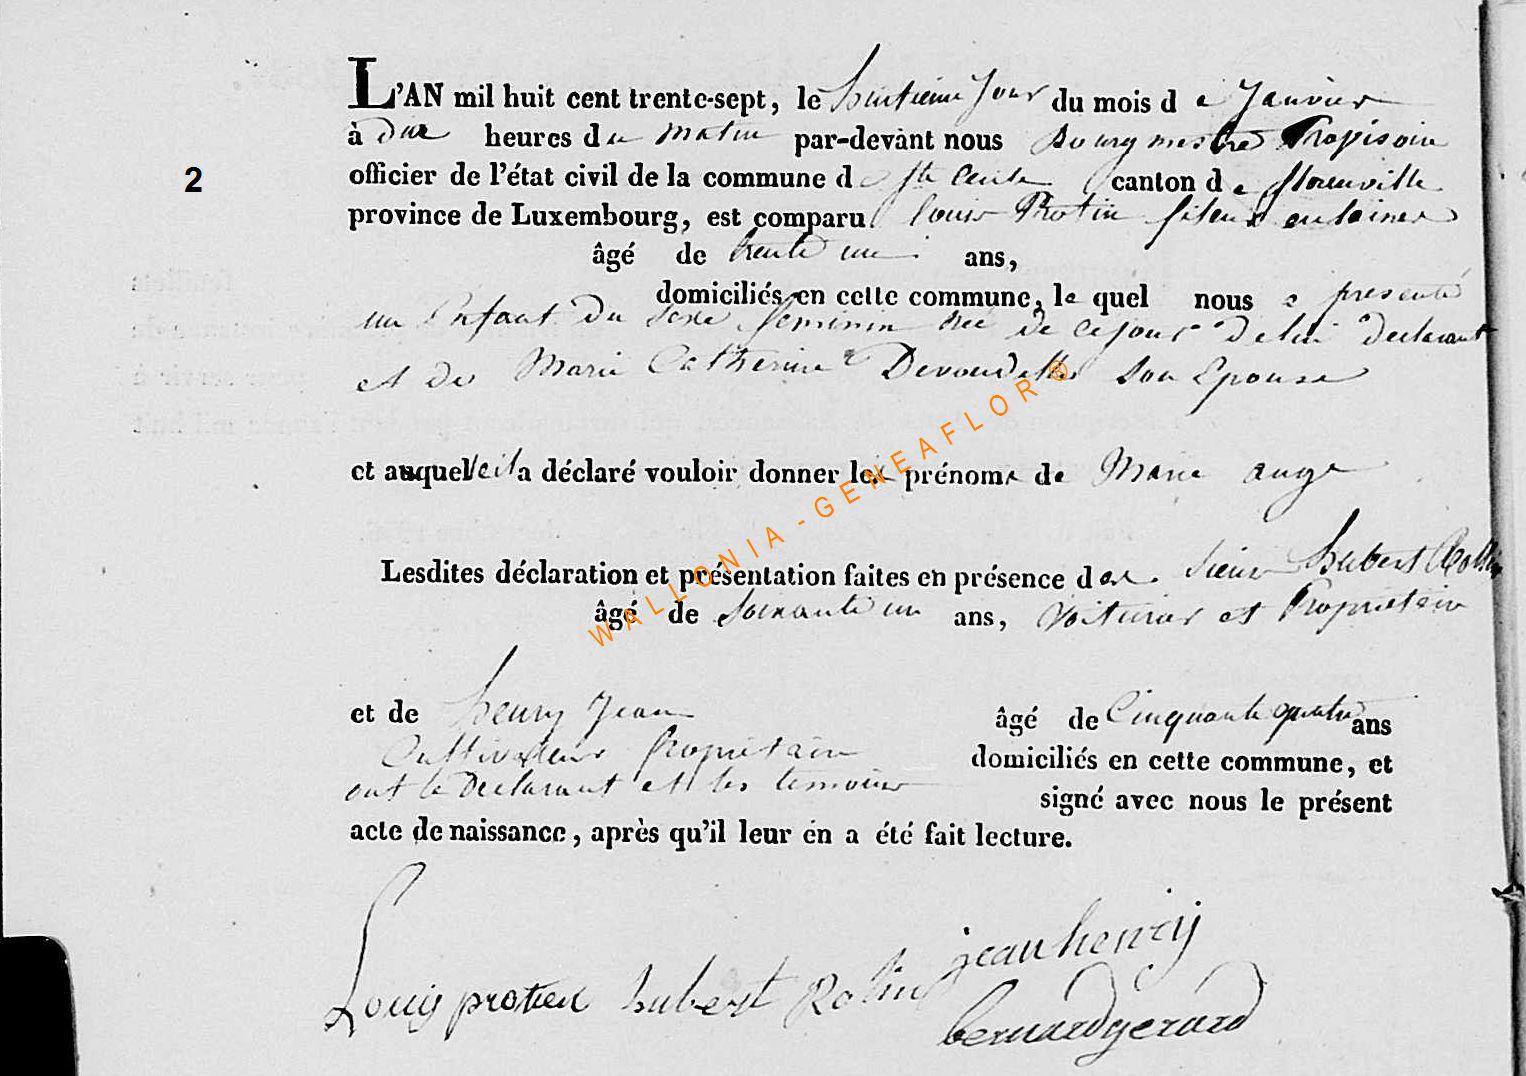 L'AN mil huit cent trente-sept, le huitieme Jour du mois d e Janvier
à dix heures du matin par-devant nous Bourgmestre Propisoire
2
officier de l'état civil de la commune d e Ste Cecile canton d e florenville
province de Luxembourg, est comparu Louis Protin fileur en laines
âgé de trente un ans,
domiciliés en cette commune, le quel nous a presenté
un Enfant du Sexe feminin née de ce jour de lui declarant
et de Marie Catherine Son Epouse
et auquel il a déclaré vouloir donner les prénoms de Marie ange
Lesdites déclaration et présentation faites en présence des Sieur hubert Rollin
âgé de Soixante un ans, Voiturier et Proprietaire
et de henry Jean âgé de Cinquante quatre ans
Cultivateur Proprietaire domiciliés en cette commune, et
ont le Declarant et les temoins signé avec nous le présent
acte de naissance, après qu'il leur en a été fait lecture.
jean henry
Louis protin hubert Rolin
bernard gerard
WALLONIA - GENEAFLOR ®